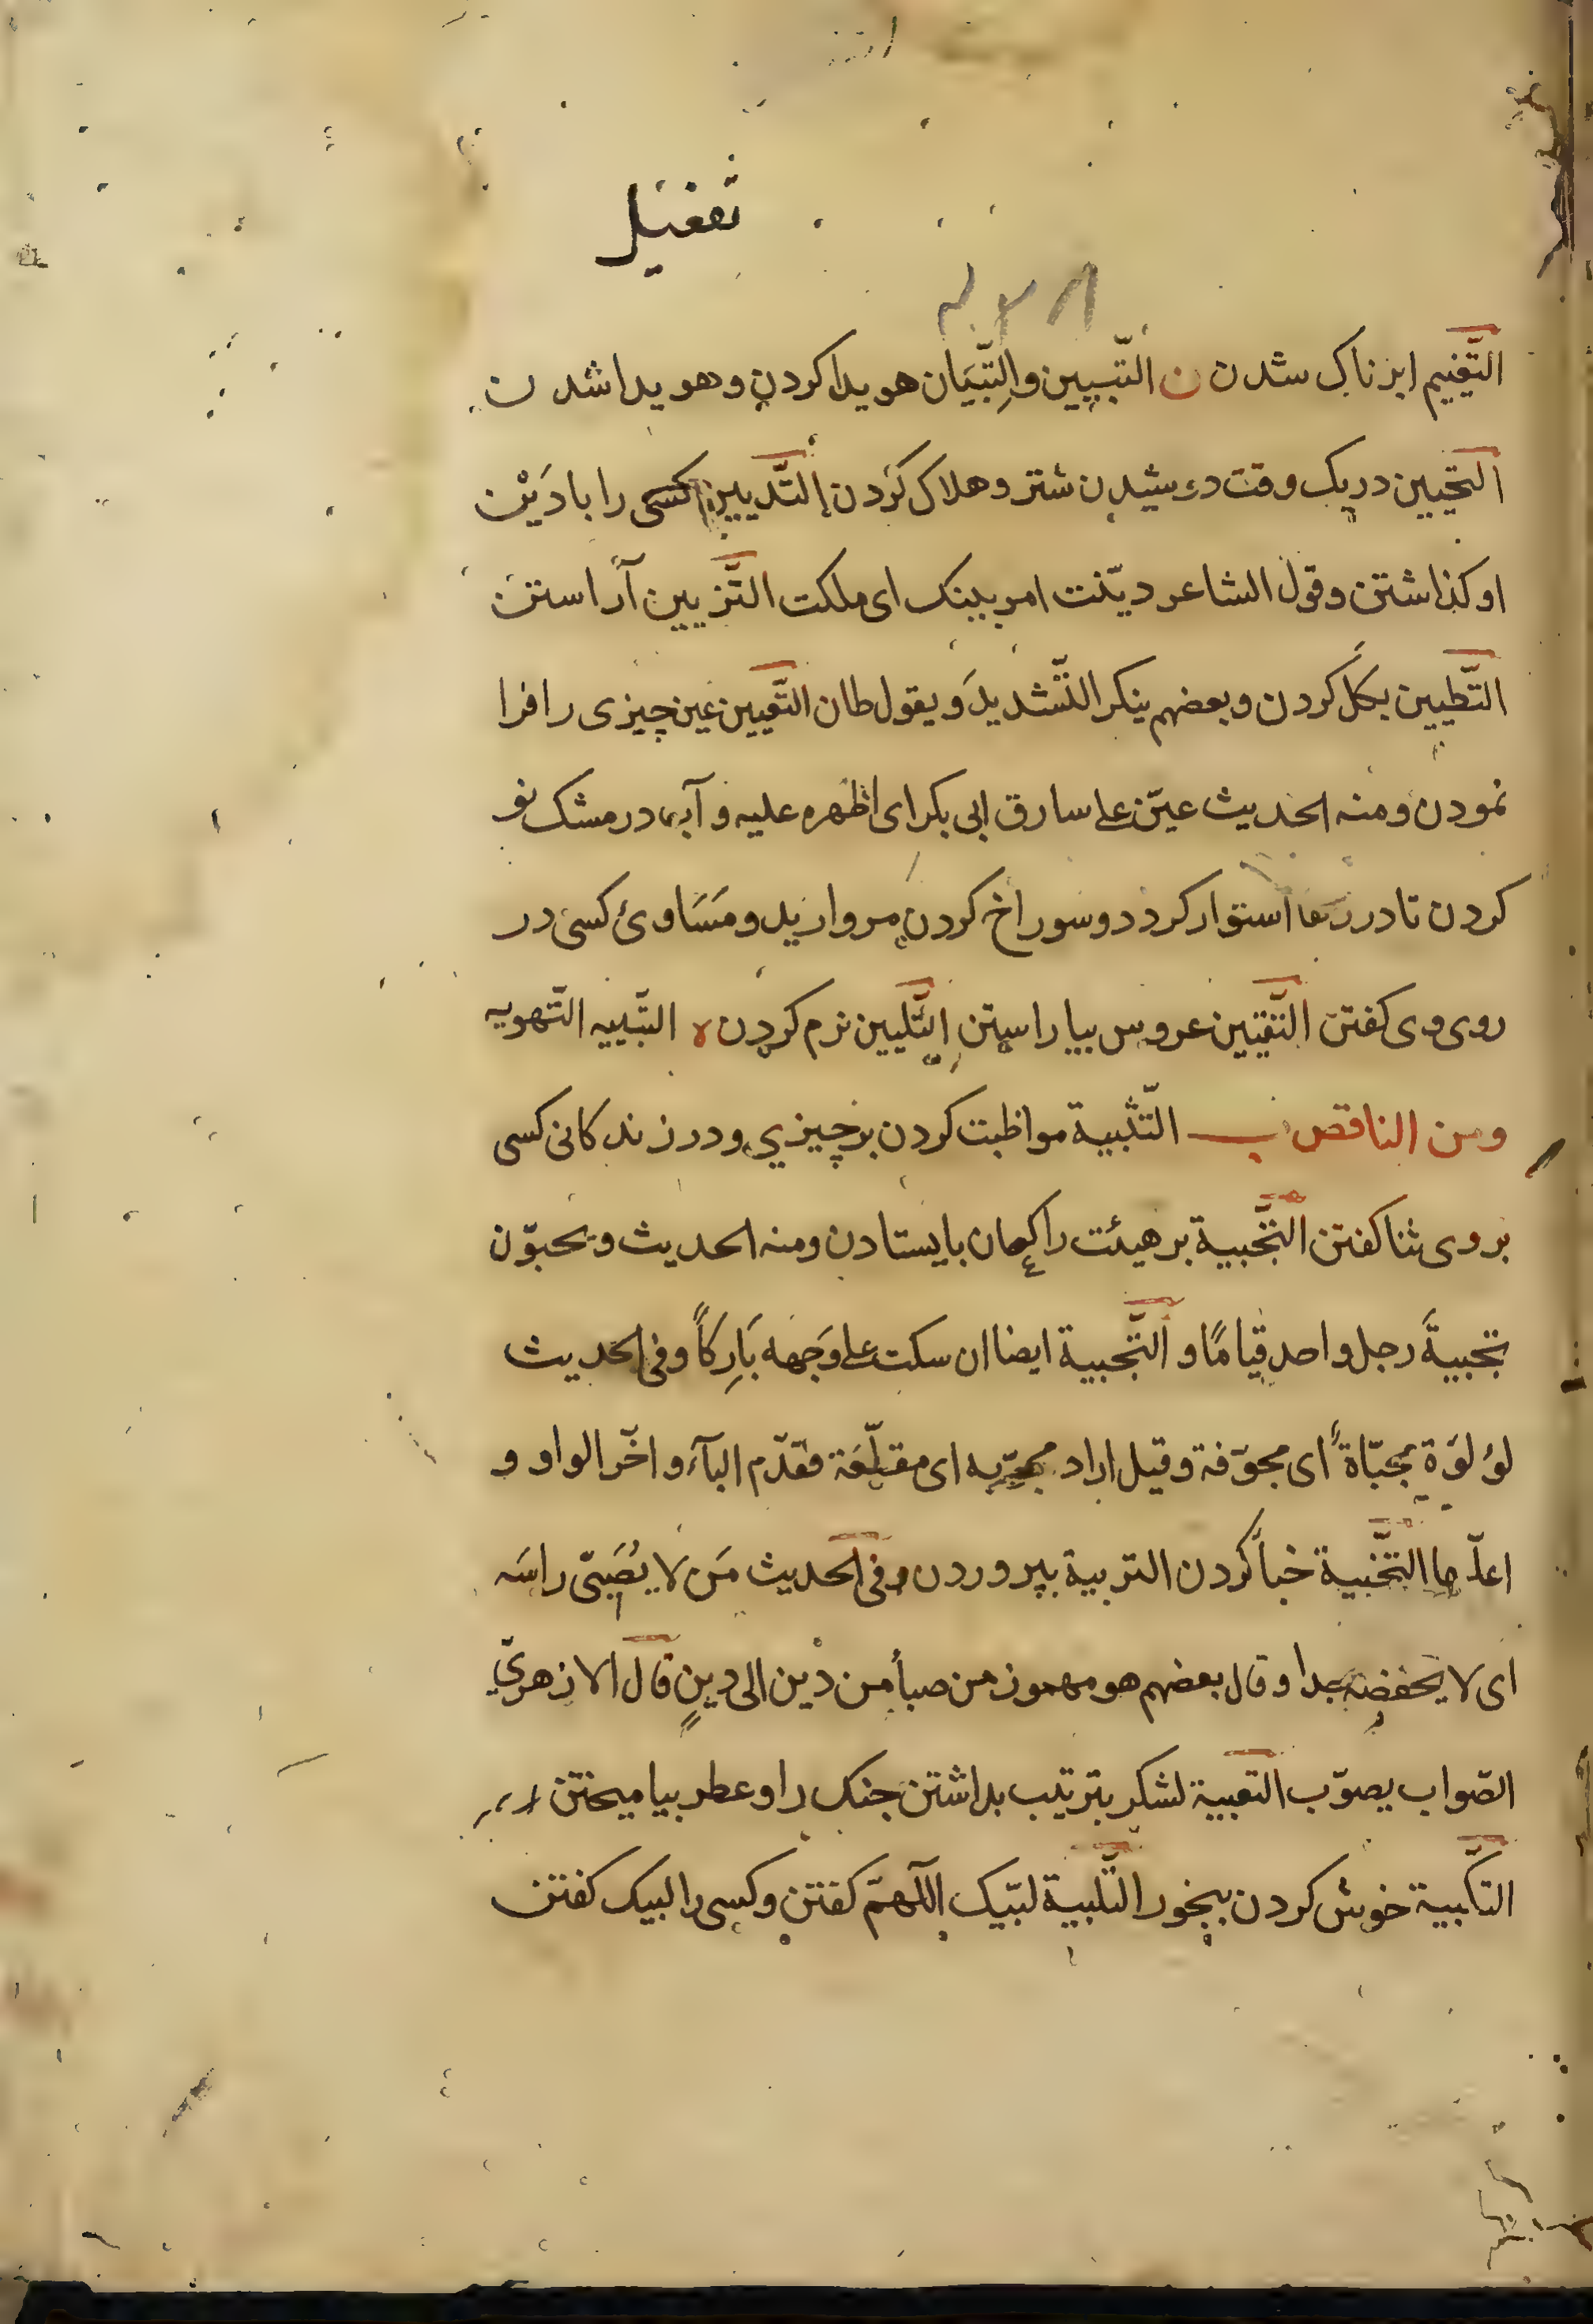 تفعيل
التّغييم ابر ناک شدن ن التّبيين والتِّبيَان هويدا کردن وهويدا شدن
التحيين در يک وقت دوشيدن شتر وهلاک کردن التَّديين کسی را با دَيْن
او کذاشتن وقول الشاعر ديّنت امر بينک ای ملکت التَّزيين آراستن
التَّطيين بکَل کردن وبعضهم ينکر التّشديدَ ويقول طان التَّعيين عين چيزی را فرا
نمودن ومنه الحديث عيّن علے سارق ابی بکر ای اظهره عليه و آب در مشک نو
کردن تا در استوار کردد وسوراخ کردن مرواريد ومَسَاوئ کسی در
روی وی کفتن التَّقيين عروس بياراستن التَّليين نرم کردن ه التّييه التّهويه
ومن الناقص ب التّثبية مواظبت کردن بر چيزي ودر زندکانی کسی
بروی ثنا کفتن التَّجبية بر هيئت راکعان بايستادن ومنه الحديث ويجبوّن
تجبيةَ رجل واحد قيامًا والتَّجبية ايضا ان سکت علے وَجهه بَارِکاً وفی الحديث
لؤلؤة مجبّاةً ای مجوّفة وقيل اراد مجوّبه ای مقطّعَة فقدّم البآء واخّر الواو و
اعلّها التَّخبية خبأ کردن التربية بپروردن وفی الحديث مَن لا يُصَبّی راسَه
ای لا يخفضه جدا وقال بعضهم هو مهموز من صبأ من دين الی دينٍ قال الازهریّ
الصّواب يصوّب التعبية لشکر بترتيب بداشتن جنک را وعطر بياميختن
التکَّبية خوش کردن ببخور التَّلبية لبّيک اللّهمّ کفتن وکسی را لبيک کفتن